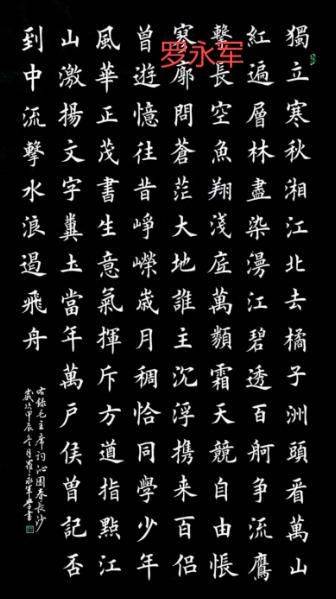 罗永军
獨立寒秋湘江北去橘子洲頭看萬山
紅遍層林盡染漫江碧透百舸争流鷹
擊長空魚翔淺底萬類霜天競自由悵
寥廓問蒼茫大地誰主沉浮携来百侣
曾遊憶往昔崢嶸歲月稠恰同學少年
風華正茂書生意氣揮斥方遒指點江
山激揚文字糞土當年萬戶侯曾記否
到中流擊水浪遏飛舟
右錄毛主席詞沁園春長沙
歲次甲辰冬月羅永軍書